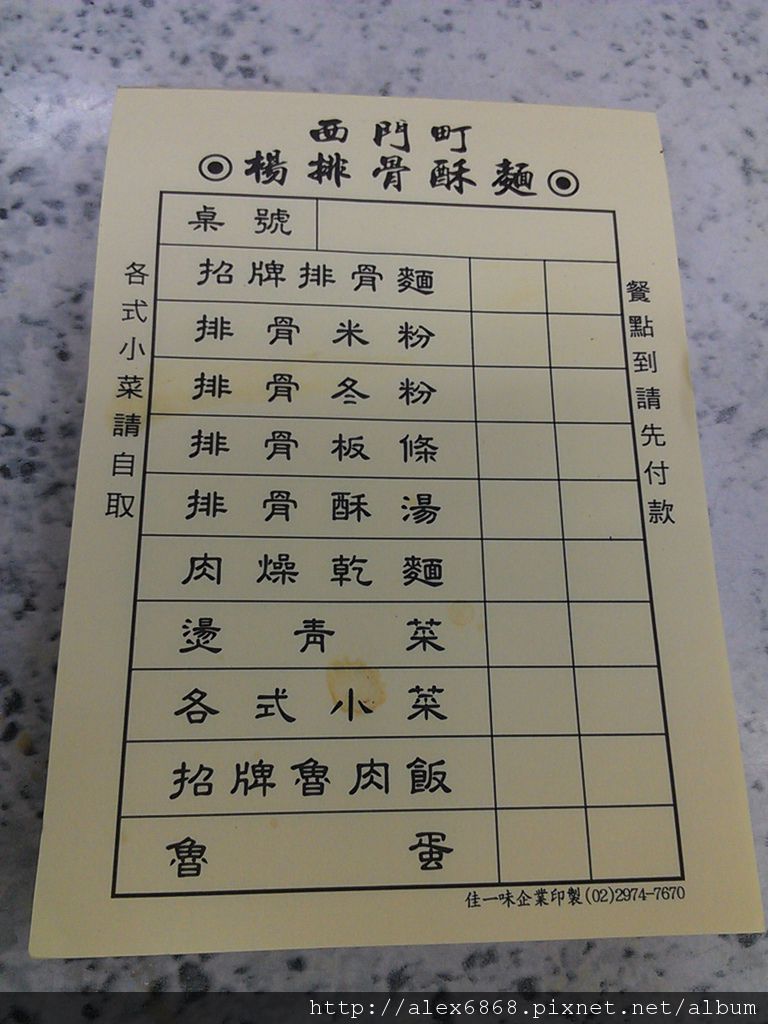 西門町
◉楊排骨酥麵◉
桌號
招牌排骨麵
排骨米粉
排骨冬粉
排骨板條
排骨酥湯
肉燥乾麵
燙青菜
各式小菜
招牌魯肉飯
魯蛋
各式小菜請自取
餐點到請先付款
佳一味企業印製(02)2974-7670
http://alex6868.pixnet.net/album